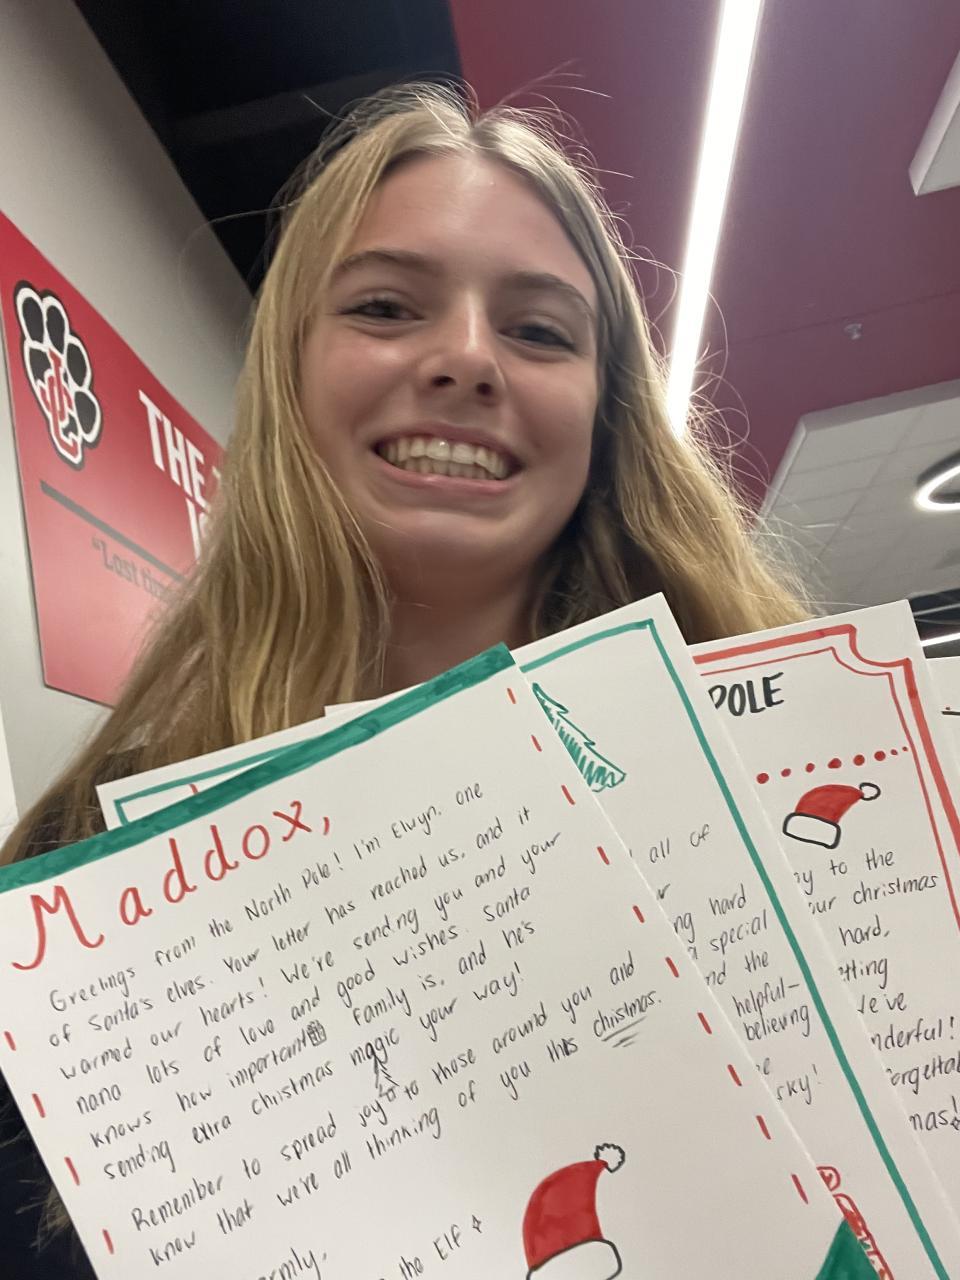 THE
"Lost
Maddox,
Greetings from the North Pole! I'm Elwyn, one
of Santa's elves. Your letter has reached us, and it
warmed our hearts! We're sending you and your
nana lots of love and good wishes. Santa
knows how important family is, and he's
sending extra christmas magic your way!
Remember to spread joy to those around you and
know that we're all thinking of you this christmas.
the Elf
all of
hard
special
the
helpful-
believing
sky!
POLE
to the
christmas
hard,